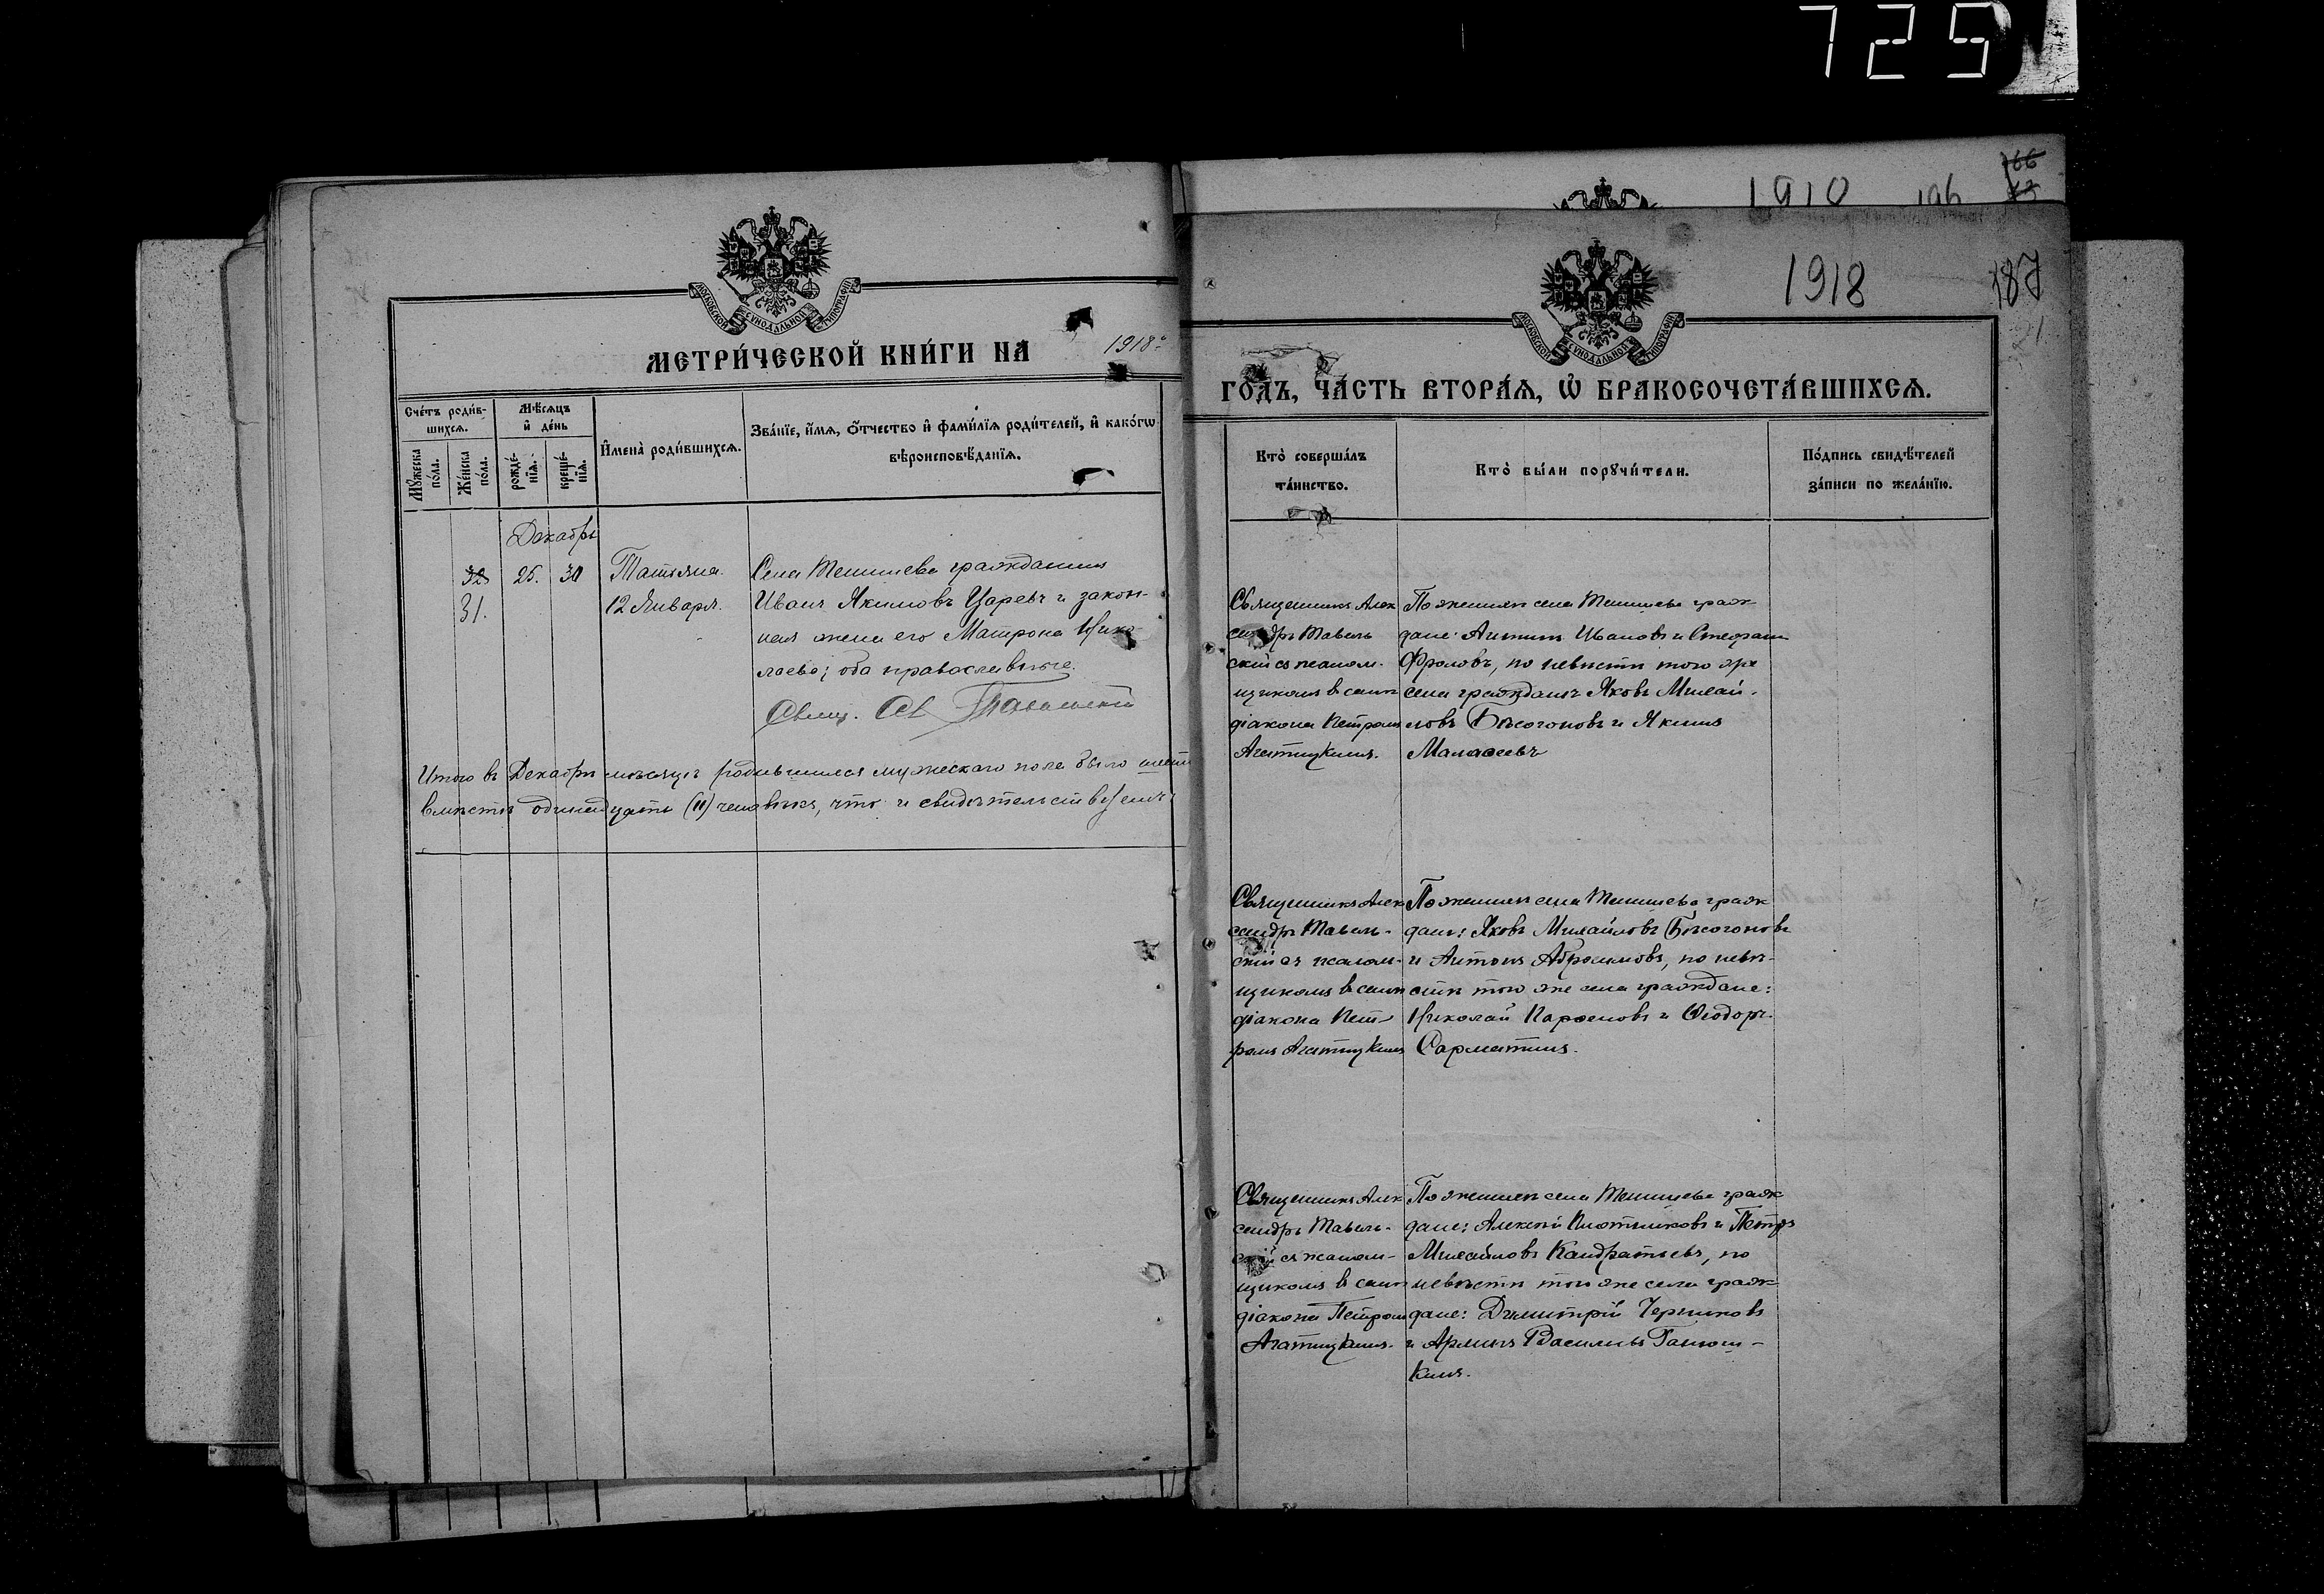 725
1910 196 166
МОСКОВСКОЙ СѴНОДАЛЬНОЙ ТИПОГРАФІИ
МЕТРИ́ЧЕСКОЙ КНИ́ГИ НА 1918 г.
Сче́тъ роди́в-
шихсѧ.
Мꙋ́жеска по́ла.
Же́нска по́ла.
Мѣ́сѧцъ
и҆ де́нь
рожде́-
нїѧ.
креще́-
нїѧ.
И҆мена̀ роди́вшихсѧ.
Зва́нїе, и҆́мѧ, ѻ҆́тчество и҆ фами́лїѧ роди́телей, и҆ како́гѡ
вѣроисповѣ́данїѧ.
Декабрь
32 25. 30 Татьяна. Села Тенишева гражданинъ
31. 12 Января. Иванъ Якимовъ Царевъ и закон-
ная жена его Матрона Нико-
лаева; оба православные.
Свящ. Ал. Тавельскій
Итого въ Декабрѣ мѣсяцѣ родившихся мужескаго пола было шесть
вмѣстѣ одинадцать (11) человѣкъ, что и свидѣтельствуемъ:
1918 187
21
МОСКОВСКОЙ СѴНОДАЛЬНОЙ ТИПОГРАФІИ
ГО́ДЪ, ЧА́СТЬ ВТОРА́Ѧ, Ѡ҆ БРАКОСОЧЕТА́ВШИХСѦ.
Кто̀ соверша́лъ
та́инство.
Кто̀ бы́ли порꙋчи́тели.
По́дпись свидѣ́телей
за́писи по жела́нїю.
Священникъ Алек
сандръ Тавель
скій съ псалом-
щикомъ в санѣ
діакона Петромъ
Агатицкимъ.
По женихѣ села Тенишева граж
дане: Антипъ Ивановъ и Стефанъ
Фроловъ, по невѣстѣ того же
села граждане Яковъ Михай-
ловъ Бѣсогоновъ и Якимъ
Малафеевъ
Священникъ Алек
сандръ Тавель-
скій съ псалом-
щикомъ в санѣ
діакона Пет-
ромъ Агатицкимъ
По женихѣ села Тенишева граж
дане: Яковъ Михайловъ Бѣсогоновъ
и Антонъ Абросимовъ, по невѣ-
стѣ того же села граждане:
Николай Парѳеновъ и Ѳеодоръ
Сарматинъ.
Священникъ Алек
сандръ Тавель-
скій съ псалом-
щикомъ в санѣ
діакона Петромъ
Агатицкимъ.
По женихѣ села Тенишева граж
дане: Алексѣй Плотниковъ и Петръ
Михайловъ Кандратьевъ, по
невѣстѣ того же села граж
дане: Димитрій Черниковъ
и Васильевъ Ганюш-
кинъ.